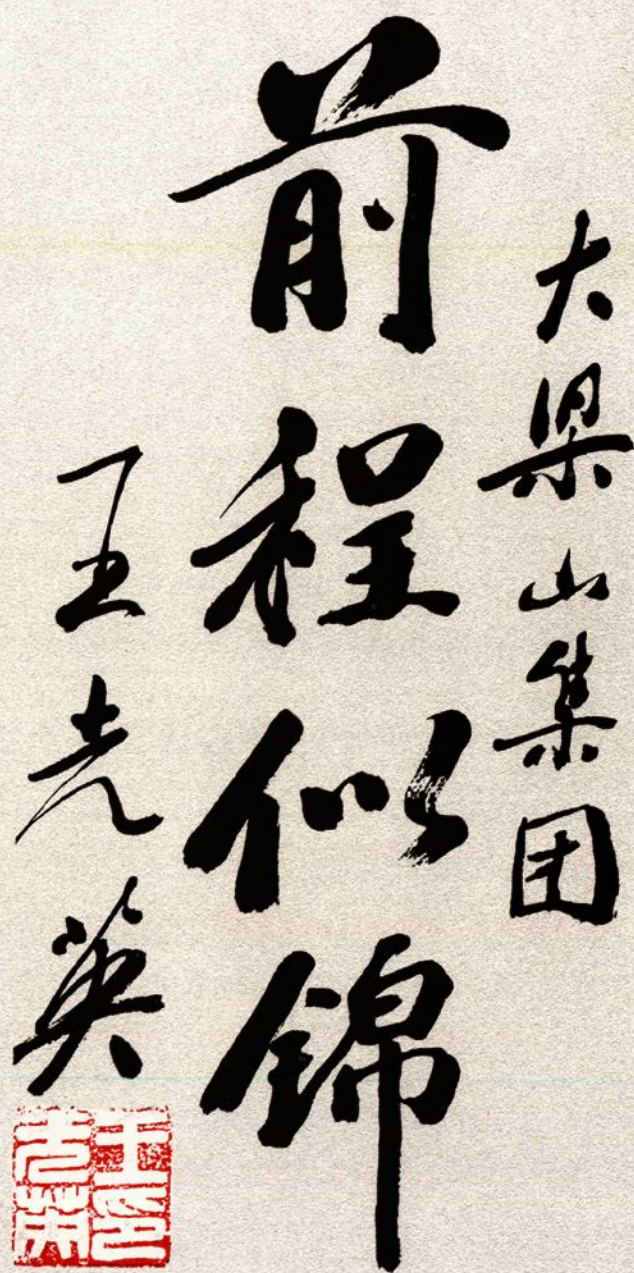 大梁山集团
前程似锦
王光英
王印
光英